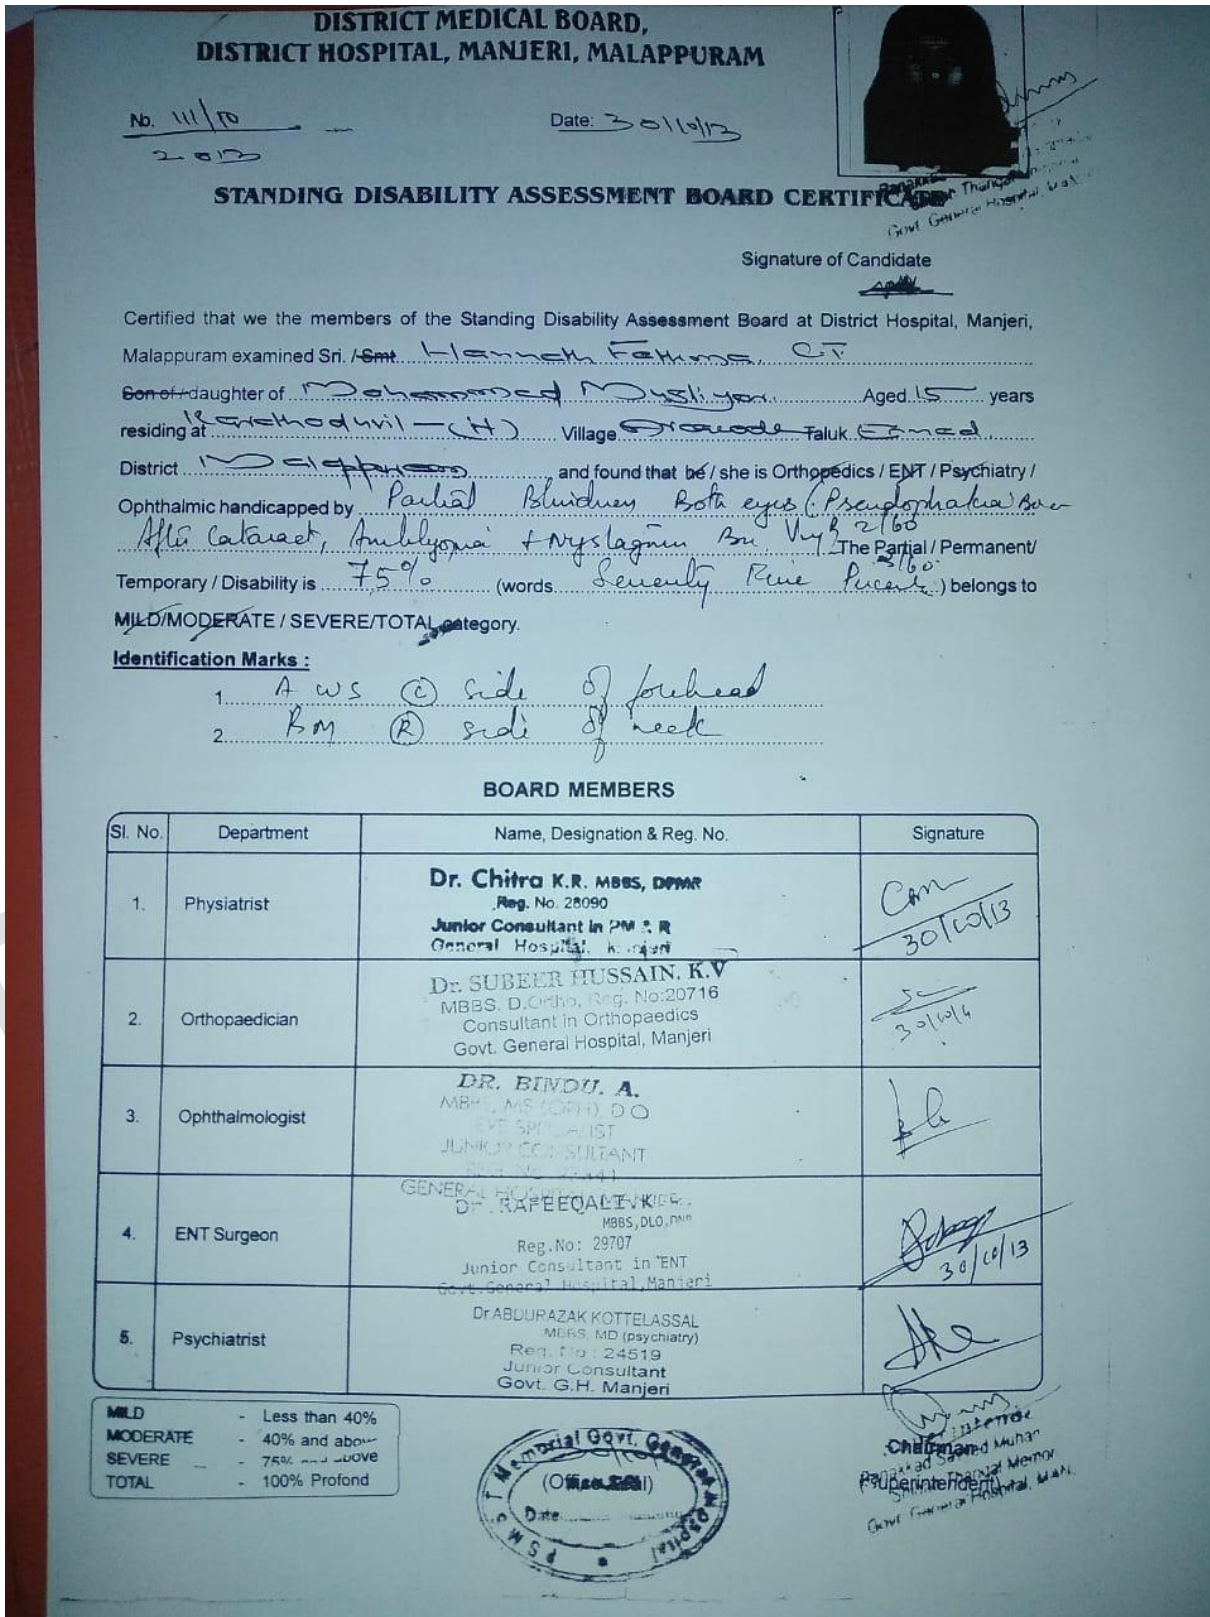 DISTRICT MEDICAL BOARD,
DISTRICT HOSPITAL, MANJERI, MALAPPURAM
No. 111/10
2013
Date: 30/10/13
STANDING DISABILITY ASSESSMENT BOARD CERTIFICATE
Govt. General Hospital,
Signature of Candidate
Certified that we the members of the Standing Disability Assessment Board at District Hospital, Manjeri,
Malappuram examined Sri. / Smt. Hannath Fathima. C.T.
Son of / daughter of Mohammed Musliyar. Aged 15 years
residing at Karathoduvil - (H) Village Areacode Taluk Ernad
District Malappuram and found that he / she is Orthopedics / ENT / Psychiatry /
Ophthalmic handicapped by Partial Blindness Both eyes (Pseudophakia)
After Cataract, Amblyopia + Nystagmus 2/60 The Partial / Permanent/
3/60
Temporary / Disability is 75% (words Seventy Five Percent) belongs to
MILD/MODERATE / SEVERE/TOTAL category.
Identification Marks :
1. A WS C side of forehead
2. BM R side of neck
BOARD MEMBERS
Sl. No. Department Name, Designation & Reg. No. Signature
1. Physiatrist Dr. Chitra K.R. MBBS, DPMR
Reg. No. 28090
Junior Consultant in PM & R
General Hospital, Manjeri
30/10/13
2. Orthopaedician Dr. SUBEER HUSSAIN. K.V
MBBS. D.Ortho, Reg. No:20716
Consultant in Orthopaedics
Govt. General Hospital, Manjeri
3. Ophthalmologist DR. BINDU. A.
MBBS, MS (OPH) DO
EYE SPECIALIST
JUNIOR CONSULTANT
GENERAL HOSPITAL
4. ENT Surgeon Dr. RAFEEQALI. K
MBBS, DLO, DNB
Reg.No: 29707
Junior Consultant in ENT
Govt.General Hospital,Manjeri
30/10/13
5. Psychiatrist Dr ABDURAZAK KOTTELASSAL
MBBS, MD (psychiatry)
Reg. No : 24519
Junior Consultant
Govt. G.H. Manjeri
MILD - Less than 40%
MODERATE - 40% and above
SEVERE - 75% and above
TOTAL - 100% Profond
PSMST Memorial Govt. General Hospital
(Office Seal)
Date
Chairman
(Superintendent)
Govt General Hospital,